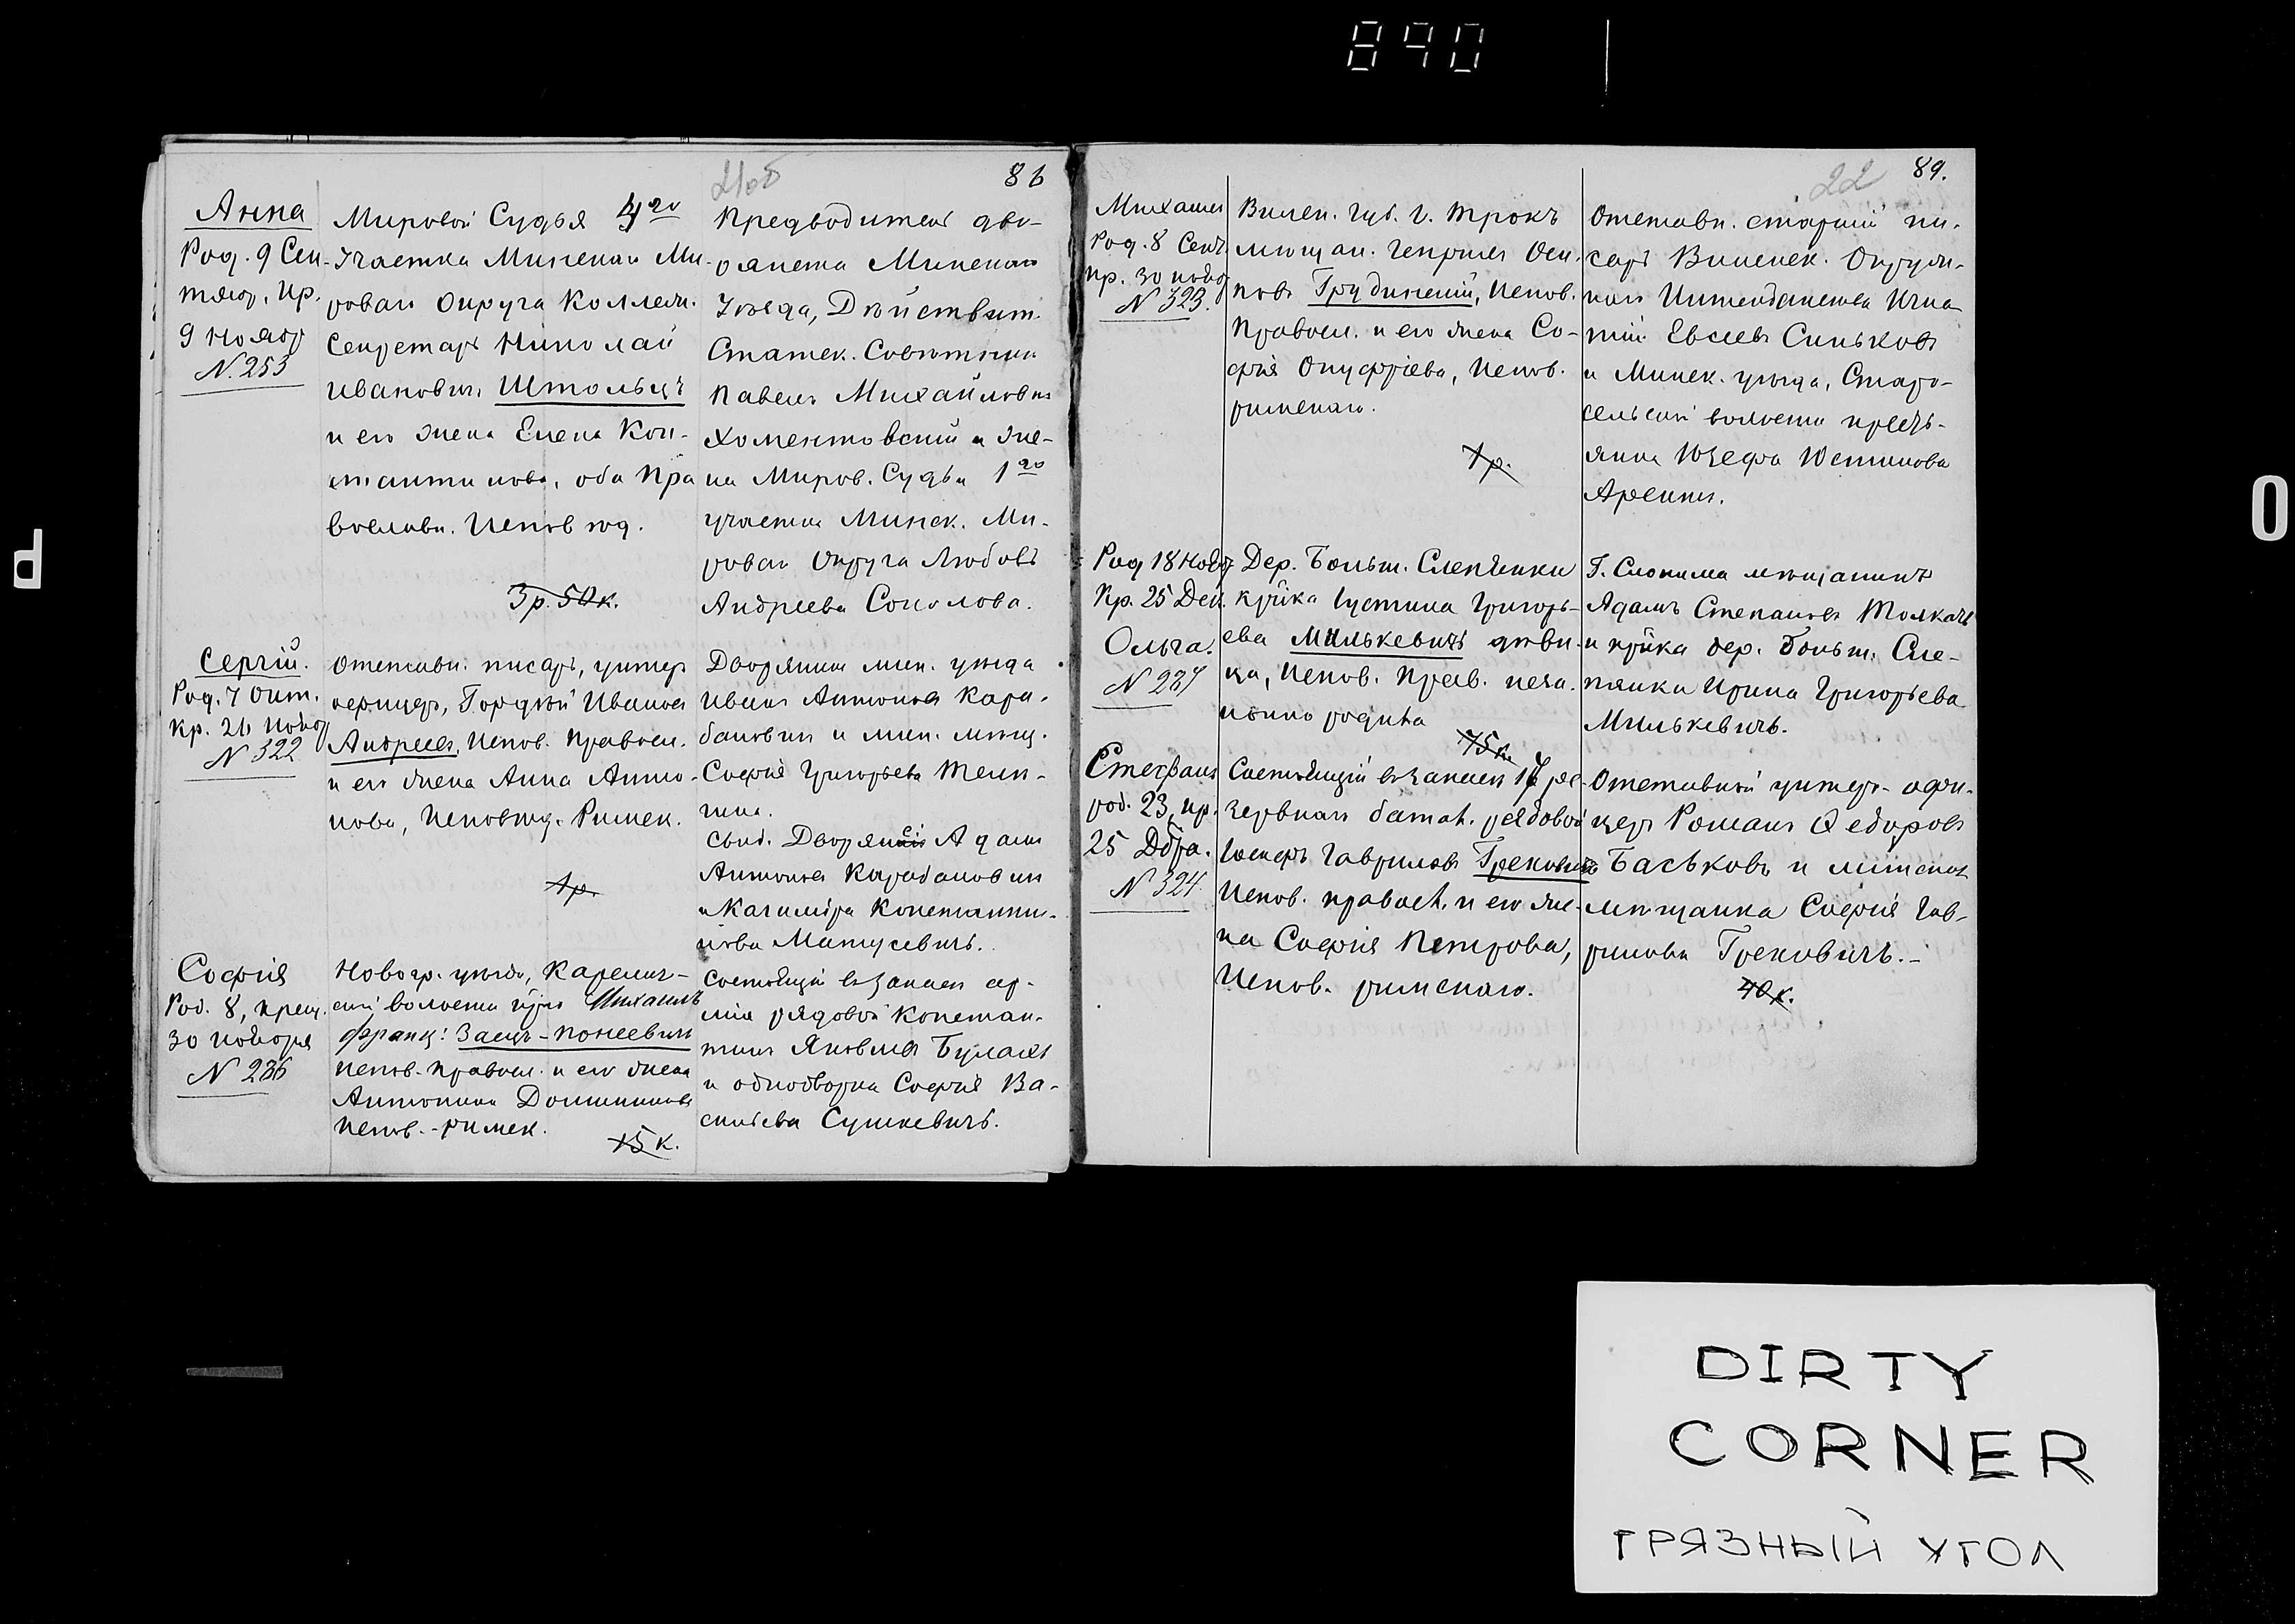 890
21об
86
Анна
Род. 9 Сен-
тябр. Кр.
9 Ноябр
N. 253
Мировой Судья 4го
Участка Минскаго Ми-
роваго Округа Коллеж.
Секретарь Николай
Ивановичъ Штольцъ
и его жена Елена Кон-
стантинова, оба Пра
вославн. Исповѣд.
3 р. 50 к.
Предводитель дво-
рянства Минскаго
Уѣзда, Дѣйствит.
Статск. Совѣтникъ
Павелъ Михайловичъ
Хоментовскій и же-
на Миров. Судьи 1го
участка Минск. Ми-
роваго Округа Любовь
Андреева Соколова.
Сергій.
Род. 7 Окт.
Кр. 26 Нояб
N 322
Отставн. писарь, унтер
офицеръ, Гордѣй Ивановъ
Андреевъ, Испов. Правосл.
и его жена Анна Анто-
нова, Исповѣд. Римск.
1 р.
Дворянинъ мин. уѣзда
Иванъ Антоновъ Кара-
бановичъ и мин. мѣщ.
Софія Григорьева
Антоновъ Карабановичъ
и Казиміра Константи-
нова Матусевичъ.
София
Род. 8, крещ.
30 ноября
N 236
Новогр. уѣзда, Карелич-
ской волости кр-нъ Михаилъ
Франц: Заецъ-
испов. правосл. и его жена
Антонина Доминикова
испов.-римск.
15 к.
Состоящій въ запасѣ ар-
міи рядовой Констан-
тинъ Яковлевъ
и однодворка Софія Ва-
сильева Сушкевичъ.
22
89.
Михаилъ
Род. 8 Сент.
кр. 30 нояб
N 323.
Вилен. губ. г. Трокъ
мѣщан. Генрихъ Оси-
повъ Грудинскій, Испов.
Правосл. и его жена Со-
фія Онуфріева, Испов.
римскаго.
1 р.
Отставн. старшій пи-
сарь Виленск. Окруж-
наго Интендантства Игна-
тій Евсѣевъ Синьковъ
и Минск. уѣзда, Старо-
сельской волости кресть-
янка Юзефа Юстинова
Род 18 Нояб
Кр. 25 Дек.
Ольга.
N 237
Дер. Больш. Слепянки
кр-ка Іустина Григорь-
ева Милькевичъ дѣви-
ца, Испов. Прав. неза-
конно родила
75 к.
Г. Слонима мѣщанинъ
Адамъ Степановъ Толкачъ
и кр-ка дер. Больш. Сле-
пянки Ирина Григорьева
Милькевичъ.
Стефанъ
род. 23, кр.
25 Дбра.
N 324.
Состоящій въ запасѣ ре-
зервнаго батал. рядовой
Гавриловъ Грековичъ
Испов. правосл. и его же-
на Софія Петрова,
Испов. римскаго.
Отставной унтер-офи-
церъ Романъ Ѳедоровъ
Баськовъ и минская
мѣщанка Софія Гав-
рилова Грековичъ.-
40 к.
DIRTY
CORNER
ГРЯЗНЫЙ УГОЛ